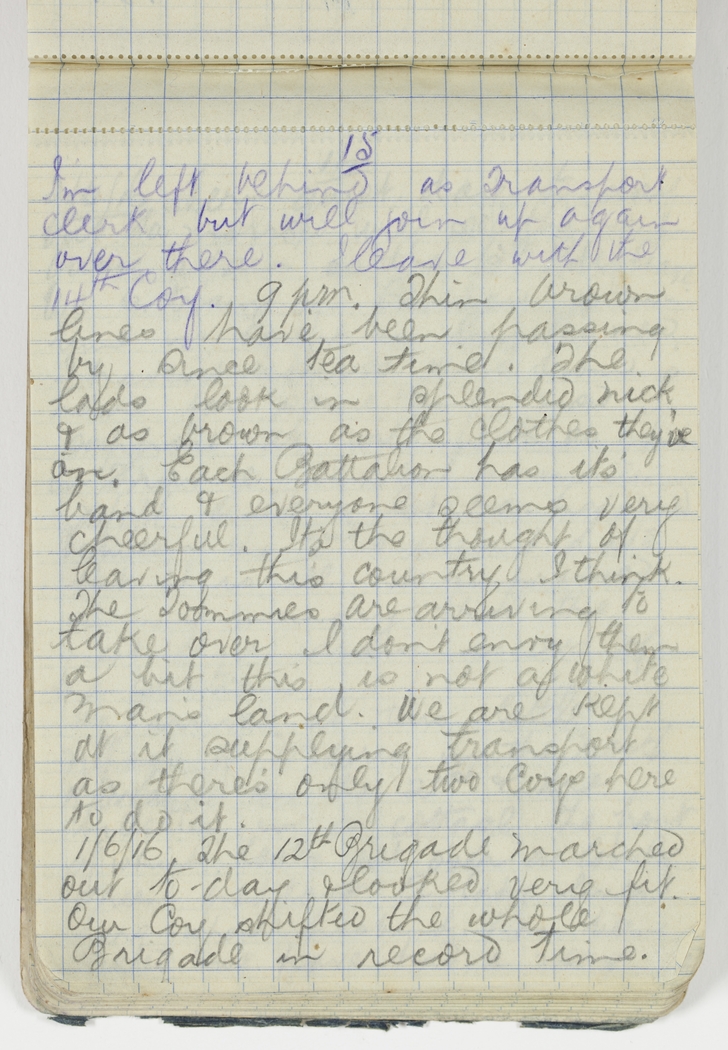 15
I'm left behind as transport
clerk but will join up again
over there. I leave with the
14th Coy. 9 pm. Thin brown
lines have been passing
by since tea time. The
lads look in splendid nick
& as brown as the clothes they've
on. Each Battalion has its
band & everyone seems very
cheerful. Its the thought of
leaving this country I think.
The Tommies are arriving to
take over I don't envy them
a bit this is not a white
man's land. We are kept
at it supplying transport
as there's only two Coys here
to do it.
1/6/16 The 12th Brigade marched
out to-day & looked very fit.
Our Coy shifted the whole
Brigade in record time.